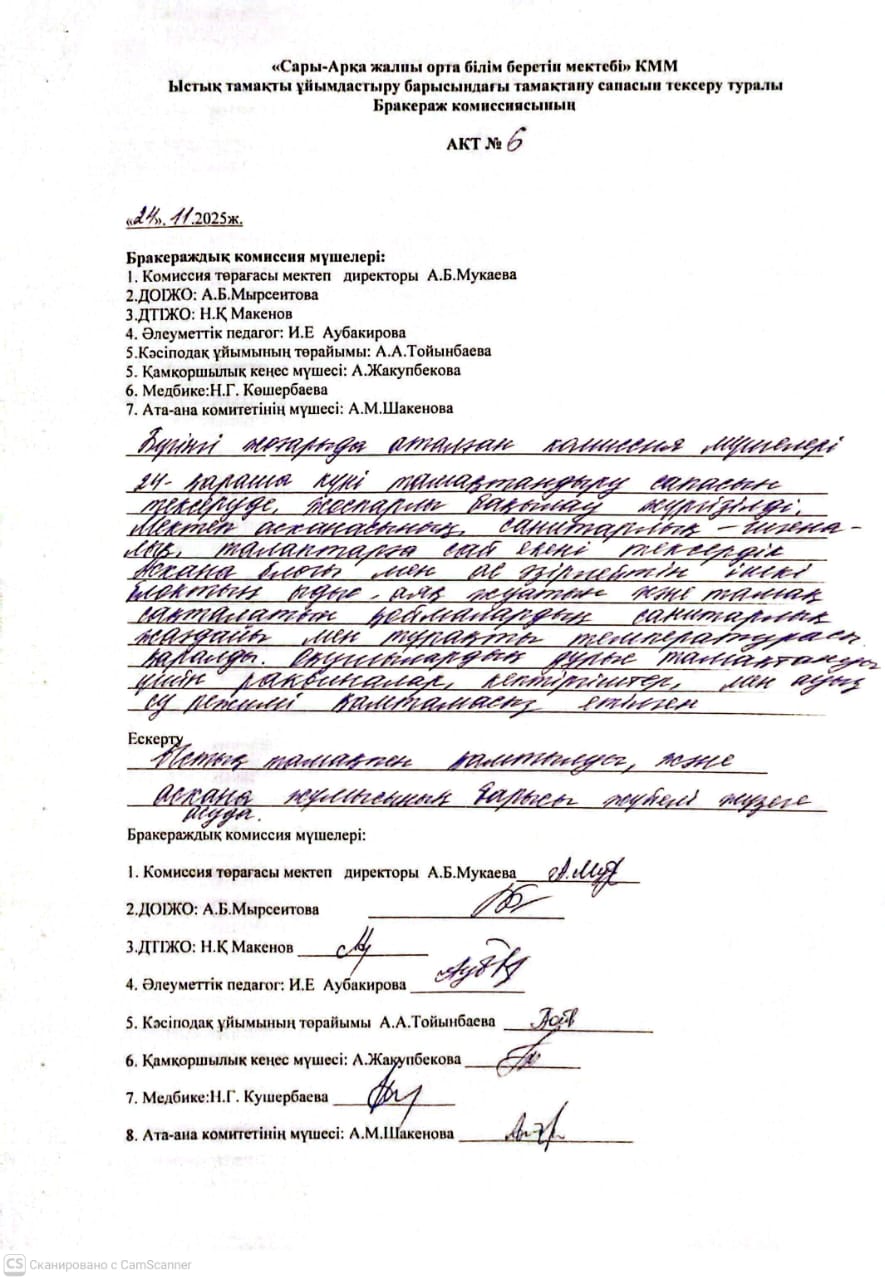 «Сары-Арқа жалпы орта білім беретін мектебі» КММ
Ыстық тамақты ұйымдастыру барысындағы тамақтану сапасын тексеру туралы
Бракераж комиссиясының
АКТ № 6
«24». 11.2025ж.
Бракераждық комиссия мүшелері:
1. Комиссия төрағасы мектеп директоры А.Б.Мукаева
2.ДОІЖО: А.Б.Мырсеитова
3.ДТІЖО: Н.Қ Макенов
4. Әлеуметтік педагог: И.Е Аубакирова
5.Кәсіподақ ұйымының төрайымы: А.А.Тойынбаева
5. Қамқоршылық кеңес мүшесі: А.Жакупбекова
6. Медбике:Н.Г. Көшербаева
7. Ата-ана комитетінің мүшесі: А.М.Шакенова
Бүгінгі жоғарыда аталған комиссия мүшелері
24- қараша күні тамақтандыру сапасын
тексеруде, жоспарлы бақылау жүргізілді.
Мектеп асханасының, санитарлық – гигена-
лық, талаптарға сай екені тексердік
Асхана блогы мен ас әзірлейтін ішкі
блоктың ыдыс - аяқ жуатын және тамақ
сақталатын қоймалардың санитарлық
жағдайы мен тұрақты температурасы
қаралды. Оқушылардың дұрыс тамақтануы
үшін раквиналар, кептіргіштер, мен ауыз
су режимі қамтамасыз етілген
Ескерту
Ыстық тамақпен қамтылуы, және
асхана жұмысының барысы жүйелі жүзеге
асуда.
Бракераждық комиссия мүшелері:
1. Комиссия төрағасы мектеп директоры А.Б.Мукаева
2.ДОІЖО: А.Б.Мырсеитова
3.ДТІЖО: Н.Қ Макенов
4. Әлеуметтік педагог: И.Е Аубакирова
5. Кәсіподақ ұйымының төрайымы А.А.Тойынбаева
6. Қамқоршылық кеңес мүшесі: А.Жакупбекова
7. Медбике:Н.Г. Кушербаева
8. Ата-ана комитетінің мүшесі: А.М.Шакенова
CS Сканировано с CamScanner